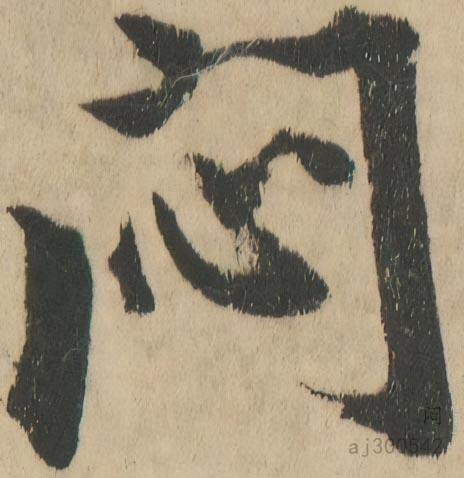 闷
aj300542